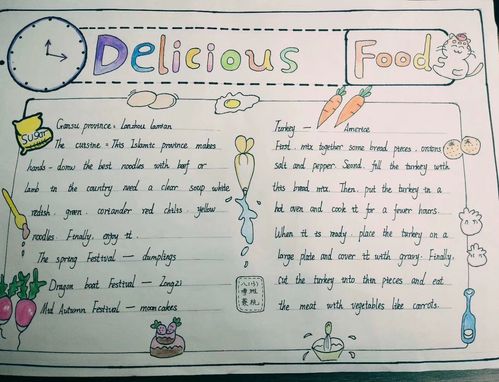 Delicious Food
SUGAR
Gansu province: Lanzhou lamian
The cuisine: This Islamic province makes
hands-donw the best noodles with beef or
lamb in the country need a clear soup white
redish, green, coriander red chilis, yellow
noodles. Finally, enjoy it.
The spring Festival — dumplings
Dragon boat Festival — Zongzi
Mid Autumn Festival — mooncakes
Turkey — America
First, mix together some bread pieces, onions
salt and pepper. Second, fill the turkey with
this bread mix. Then, put the turkey in a
hot oven and cook it for a fewer hours.
When it is ready, place the turkey on a
large plate and cover it with gravy. Finally,
cut the turkey into thin pieces and eat
the meat with vegetables like carrots.